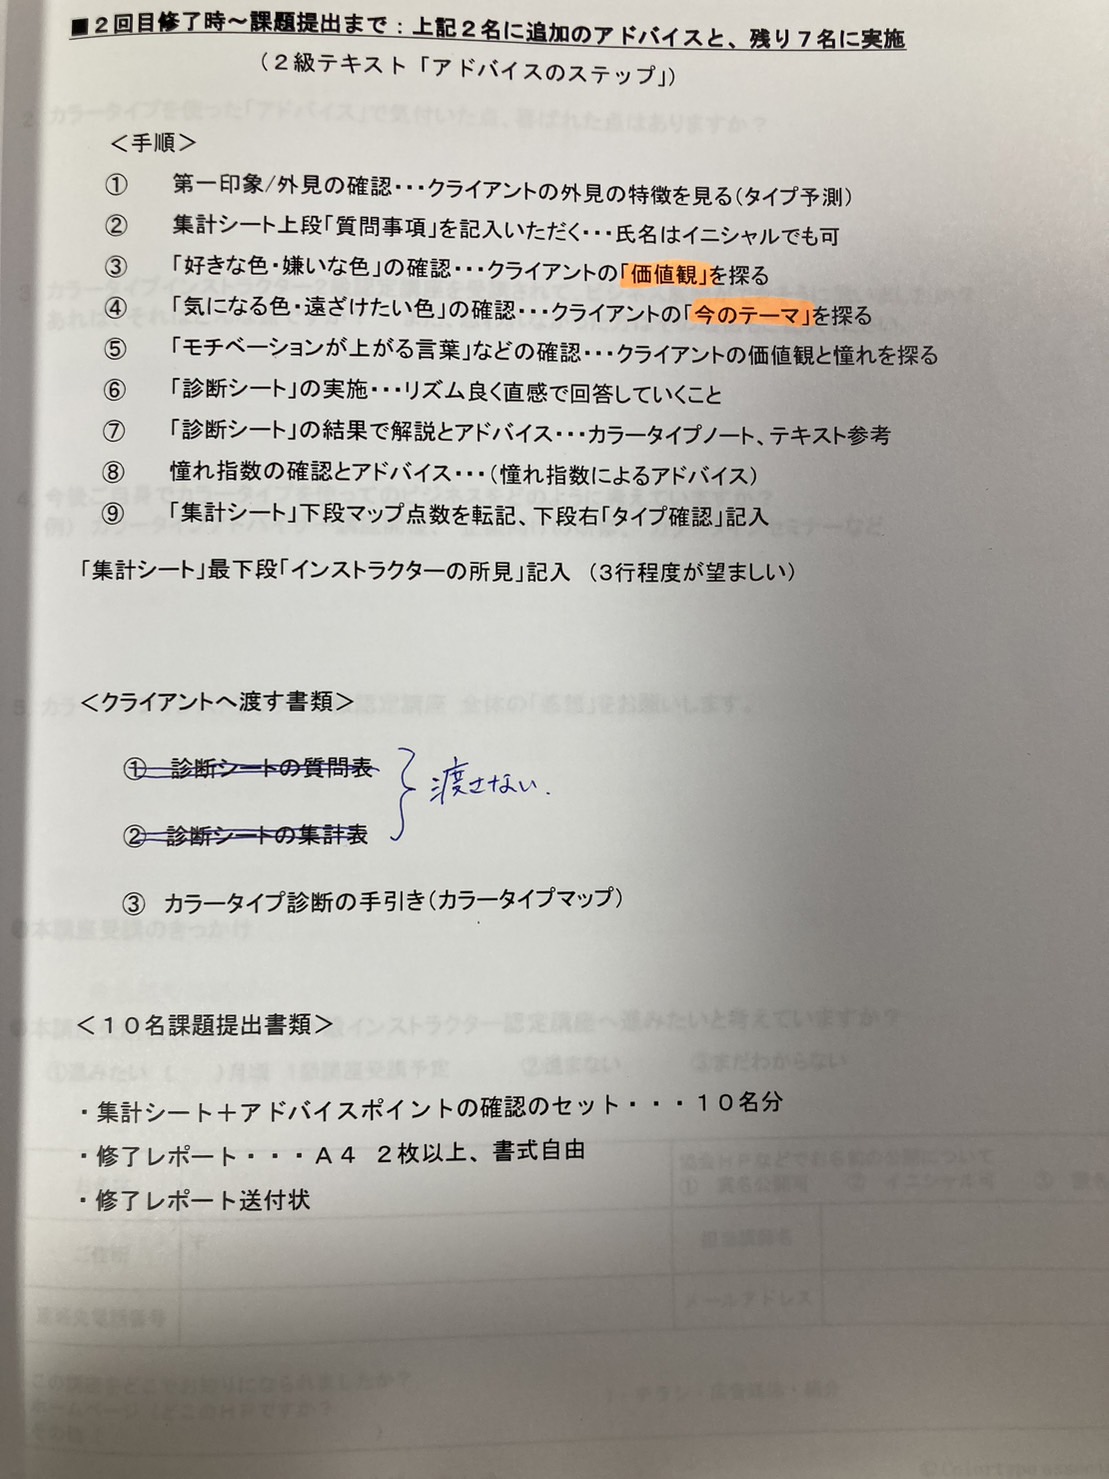 ■２回目修了時～課題提出まで：上記２名に追加のアドバイスと、残り７名に実施
（２級テキスト「アドバイスのステップ」）
＜手順＞
① 第一印象/外見の確認･･･クライアントの外見の特徴を見る（タイプ予測）
② 集計シート上段「質問事項」を記入いただく･･･氏名はイニシャルでも可
③ 「好きな色・嫌いな色」の確認･･･クライアントの「価値観」を探る
④ 「気になる色・遠ざけたい色」の確認･･･クライアントの「今のテーマ」を探る
⑤ 「モチベーションが上がる言葉」などの確認･･･クライアントの価値観と憧れを探る
⑥ 「診断シート」の実施･･･リズム良く直感で回答していくこと
⑦ 「診断シート」の結果で解説とアドバイス･･･カラータイプノート、テキスト参考
⑧ 憧れ指数の確認とアドバイス･･･（憧れ指数によるアドバイス）
⑨ 「集計シート」下段マップ点数を転記、下段右「タイプ確認」記入
「集計シート」最下段「インストラクターの所見」記入 （3行程度が望ましい）
＜クライアントへ渡す書類＞
① 診断シートの質問表
渡さない.
② 診断シートの集計表
③ カラータイプ診断の手引き（カラータイプマップ）
＜１０名課題提出書類＞
・集計シート＋アドバイスポイントの確認のセット・・・１０名分
・修了レポート・・・Ａ４ ２枚以上、書式自由
・修了レポート送付状